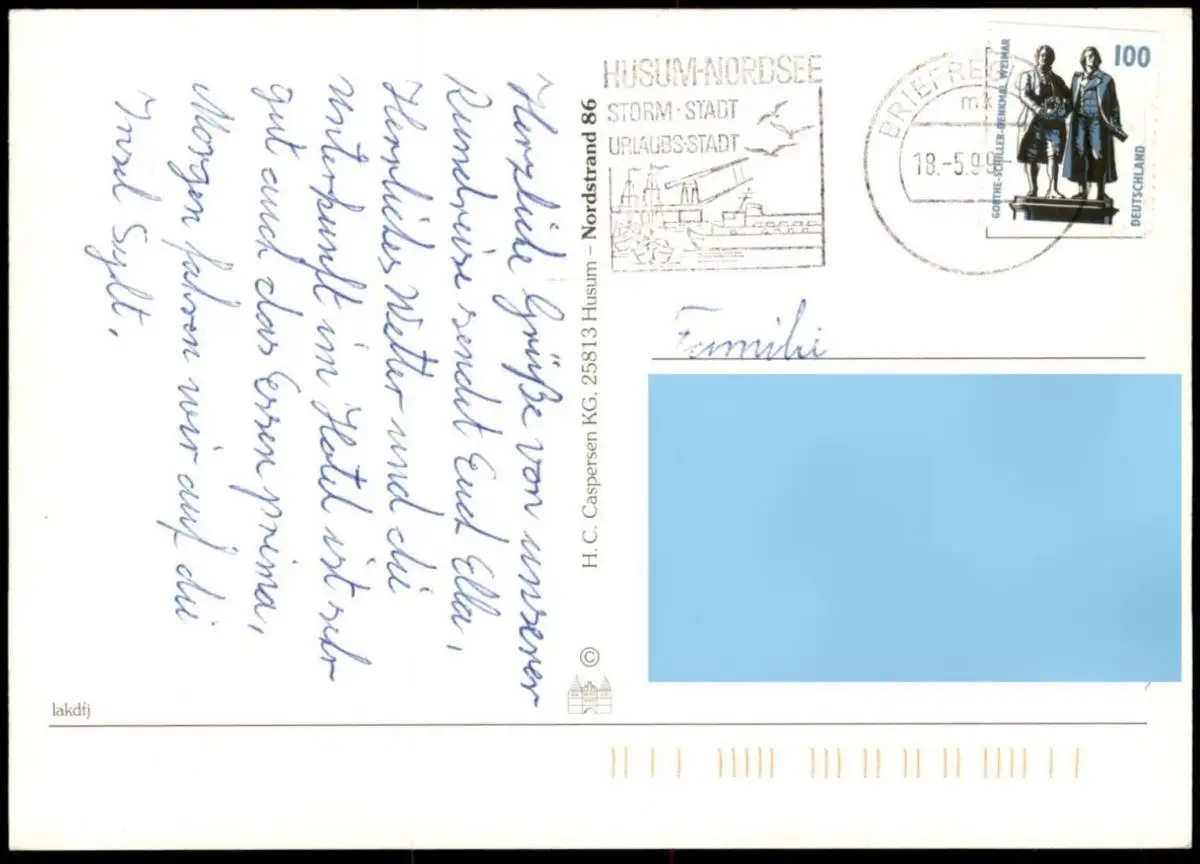 Herzliche Grüße von unserer
Rundreise sendet Euch Ella,
Herrliches Wetter und die
Unterkunft im Hotel ist sehr
gut auch das Essen prima,
Morgen fahren wir auf die
Insel Sylt.
lakdfj
© H. C. Caspersen KG, 25813 Husum – Nordstrand 86
HUSUM-NORDSEE
STORM·STADT
URLAUBS·STADT
BRIEFRE
mk
18.-5.99
100
GOETHE-SCHILLER-DENKMAL WEIMAR
DEUTSCHLAND
Familie